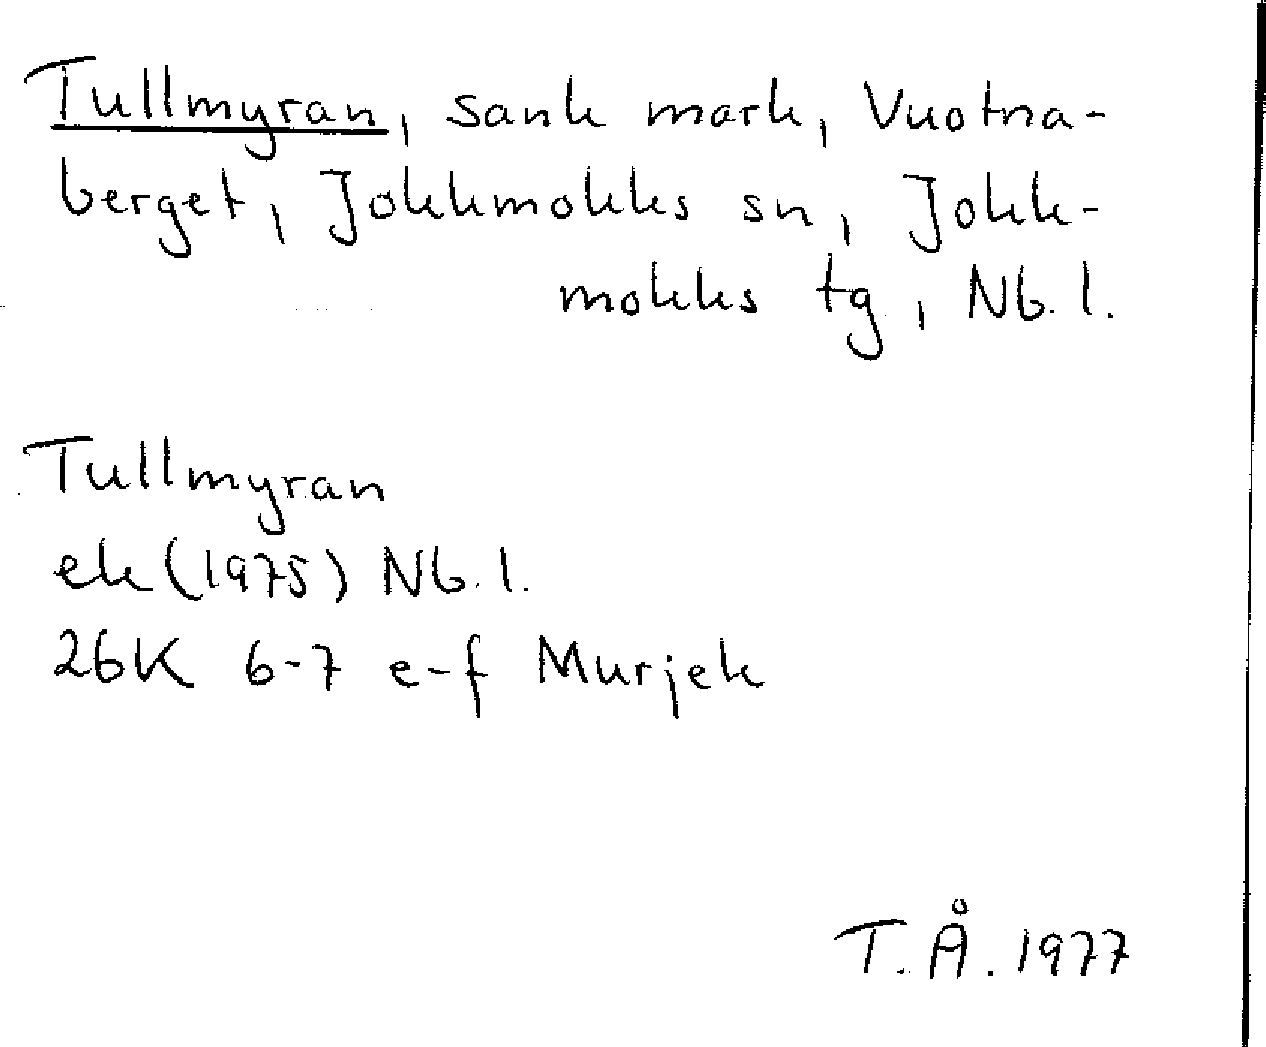 Tullmyran, sank mark, Vuotna-
berget, Jokkmokks sn, Jokk-
mokks tg, Nb. l.
Tullmyran
ek (1975) Nb. l.
26K 6-7 e-f Murjek
T. Å. 1977